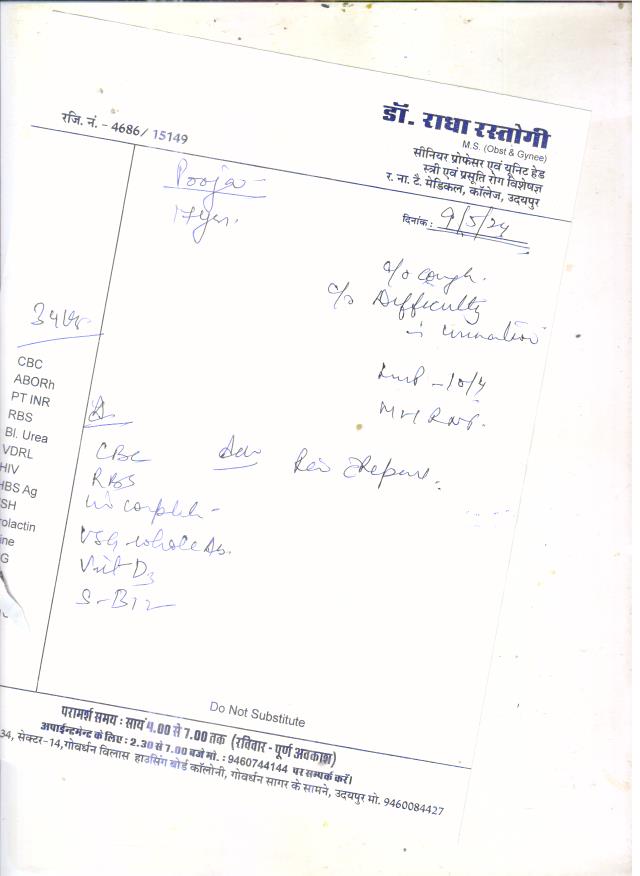 रजि. नं. - 4686/ 15149
डॉ. राधा रस्तोगी
M.S. (Obst & Gynee)
सीनियर प्रोफेसर एवं यूनिट हेड
स्त्री एवं प्रसूति रोग विशेषज्ञ
र. ना. टै. मेडिकल, कॉलेज, उदयपुर
दिनांक: 9/5/24
Pooja
17yr.
c/o cough.
c/o Difficulty
in urination
LMP - 10/4
CBC
ABORh
PT INR
RBS
Bl. Urea
VDRL
HIV
HBS Ag
SH
rolactin
ine
G
CBC
RBS
USG whole Ab.
Vit D3
S-B12
Do Not Substitute
परामर्श समय : सायं 4.00 से 7.00 तक (रविवार - पूर्ण अवकाश)
अपाईन्टमेन्ट के लिए : 2.30 से 7.00 बजे मो. : 9460744144 पर सम्पर्क करें।
34, सेक्टर-14, गोवर्धन विलास हाउसिंग बोर्ड कॉलोनी, गोवर्धन सागर के सामने, उदयपुर मो. 9460084427